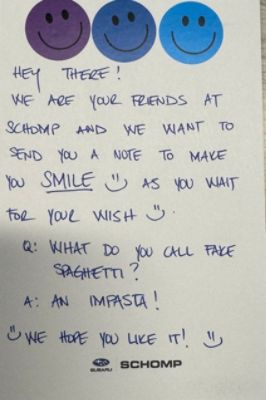 HEY THERE!
WE ARE YOUR FRIENDS AT
SCHOMP AND WE WANT TO
SEND YOU A NOTE TO MAKE
YOU SMILE AS YOU WAIT
FOR YOUR WISH.
Q: WHAT DO YOU CALL FAKE
SPAGHETTI?
A: AN IMPASTA!
WE HOPE YOU LIKE IT!
SUBARU SCHOMP